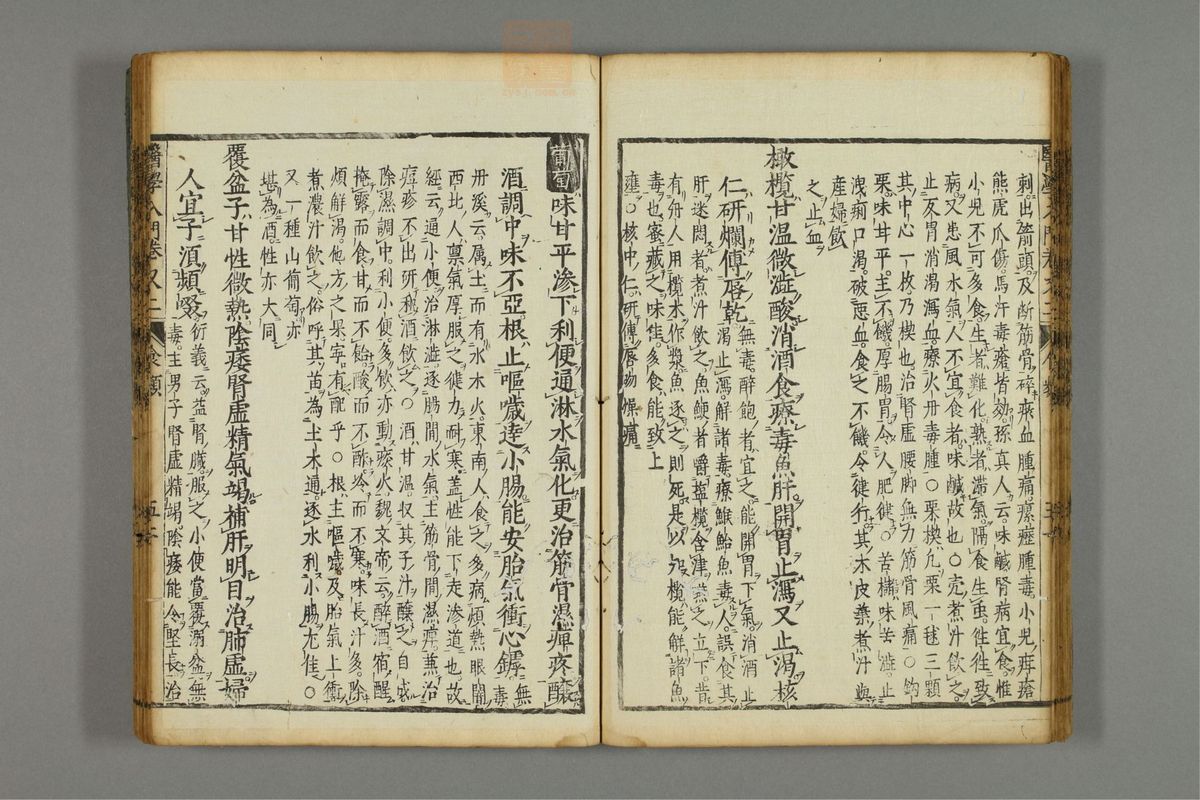 刺出箭頭及斷筋骨碎瘀血腫痛瘰癧腫毒小兒疳瘡
熊虎爪傷馬汗毒瘡皆効孫真人云味鹹腎病宜食惟
小兒不可多食生者難化熟者滯氣隔食生虫徃徃致
病又患風水氣人不宜食者味鹹故也○壳煮汁飲之
止反胃消渴瀉血療火丹毒腫○栗楔凢栗一毬三顆
其中心一枚乃楔也治腎虛腰脚無力筋骨風痛○鈎
栗味甘平主不饑厚腸胃令人肥健○苦櫧味苦澁止
洩痢口渴破惡血食之不饑令健行其木皮葉煮汁與
産婦飲
之止血
橄欖甘溫微澁酸消酒食療毒魚肝開胃止瀉又止渴核
仁研爛傅唇乾
無毒醉飽者宜之能開胃下氣消酒止
渴止瀉解諸毒療鯸鮐魚毒人誤食其
肝迷悶者煮汁飲之魚鯁者嚼塩欖含津嚥之立下昔
有舟人用欖木作漿魚逐之則死是以知欖能解諸魚
毒也蜜藏之味佳多食能致上
壅○核中仁研傅唇吻燥痛
葡萄味甘平滲下利便通淋水氣化更治筋骨濕痺疼釀
酒調中味不亞根止嘔噦達小腸能安胎氣衝心罅
無毒
丹溪云属土而有水木火東南人食之多病煩熱眼闇
西北人禀氣厚服之健力耐寒盖性能下走滲道也故
經云通小便治淋澁逐腸間水氣主筋骨間濕痺兼治
痘疹不出研和酒飲之○酒甘溫収其子汁釀之自成
除濕調中利小便多飲亦動痰火魏文帝云醉酒宿醒
掩露而食甘而不飴酸而不酢冷而不寒味長汁多除
煩解渴他方之果寧有配乎○根主嘔噦及胎氣上衝
煮濃汁飲之俗呼其苗為土木通逐水利小腸尤佳○
又一種山葡萄亦
堪為酒性亦大同
覆盆子甘性微熱陰痿腎虛精氣竭補肝明目治肺虛婦
人宜子湏頻啜
衍義云益腎臟服之小便當覆溺盆無
毒主男子腎虛精竭陰痿能令堅長治
醫學入門卷
食類